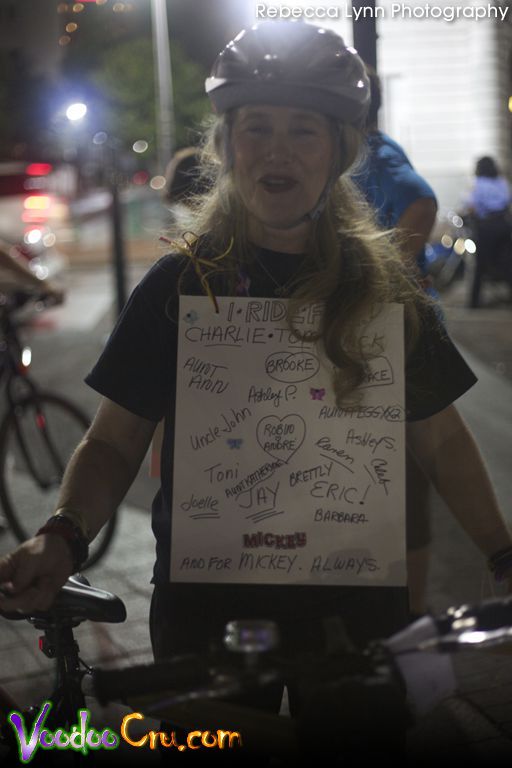 Rebecca Lynn Photography
I•RIDE
CHARLIE•TO
BROOKE
AUNT
ANN
Ashley P.
Uncle John
ROBIN
&
ANDRE
Ashley S.
Karen
Toni
AUNT KATHERINE
BRETTLY
Joelle
JAY
ERIC!
BARBARA
MICKEY
AND FOR MICKEY. ALWAYS.
VoodooCru.com